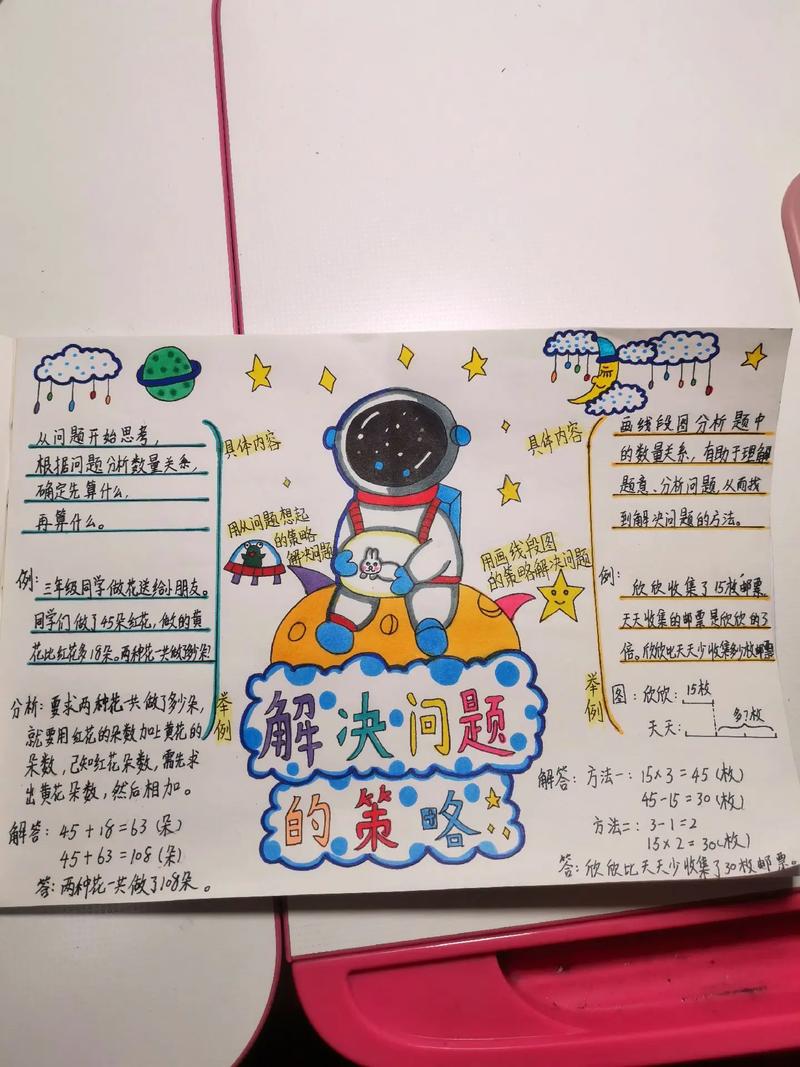 从问题开始思考,
根据问题分析数量关系,
确定先算什么,
再算什么。
具体内容
用从问题想起
的策略
解决问题
例:三年级同学做花送给小朋友。
同学们做了45朵红花,做的黄
花比红花多18朵。两种花一共做了多少朵?
举例
分析:要求两种花一共做了多少朵,
就要用红花的朵数加上黄花的
朵数,已知红花朵数,需先求
出黄花朵数,然后相加。
解答: 45+18=63 (朵)
45+63=108 (朵)
答:两种花一共做了108朵。
解决问题
的策略
具体内容
画线段图分析题中
的数量关系,有助于理解
题意、分析问题,从而找
到解决问题的方法。
用画线段图
的策略解决问题
例:
欣欣收集了15枚邮票
天天收集的邮票是欣欣的3
倍。欣欣比天天少收集多少枚邮票
举例
图:欣欣: 15枚
天天: 多?枚
解答:方法一:15×3=45(枚)
45-15=30(枚)
方法二:3-1=2
15×2=30(枚)
答:欣欣比天天少收集了30枚邮票。